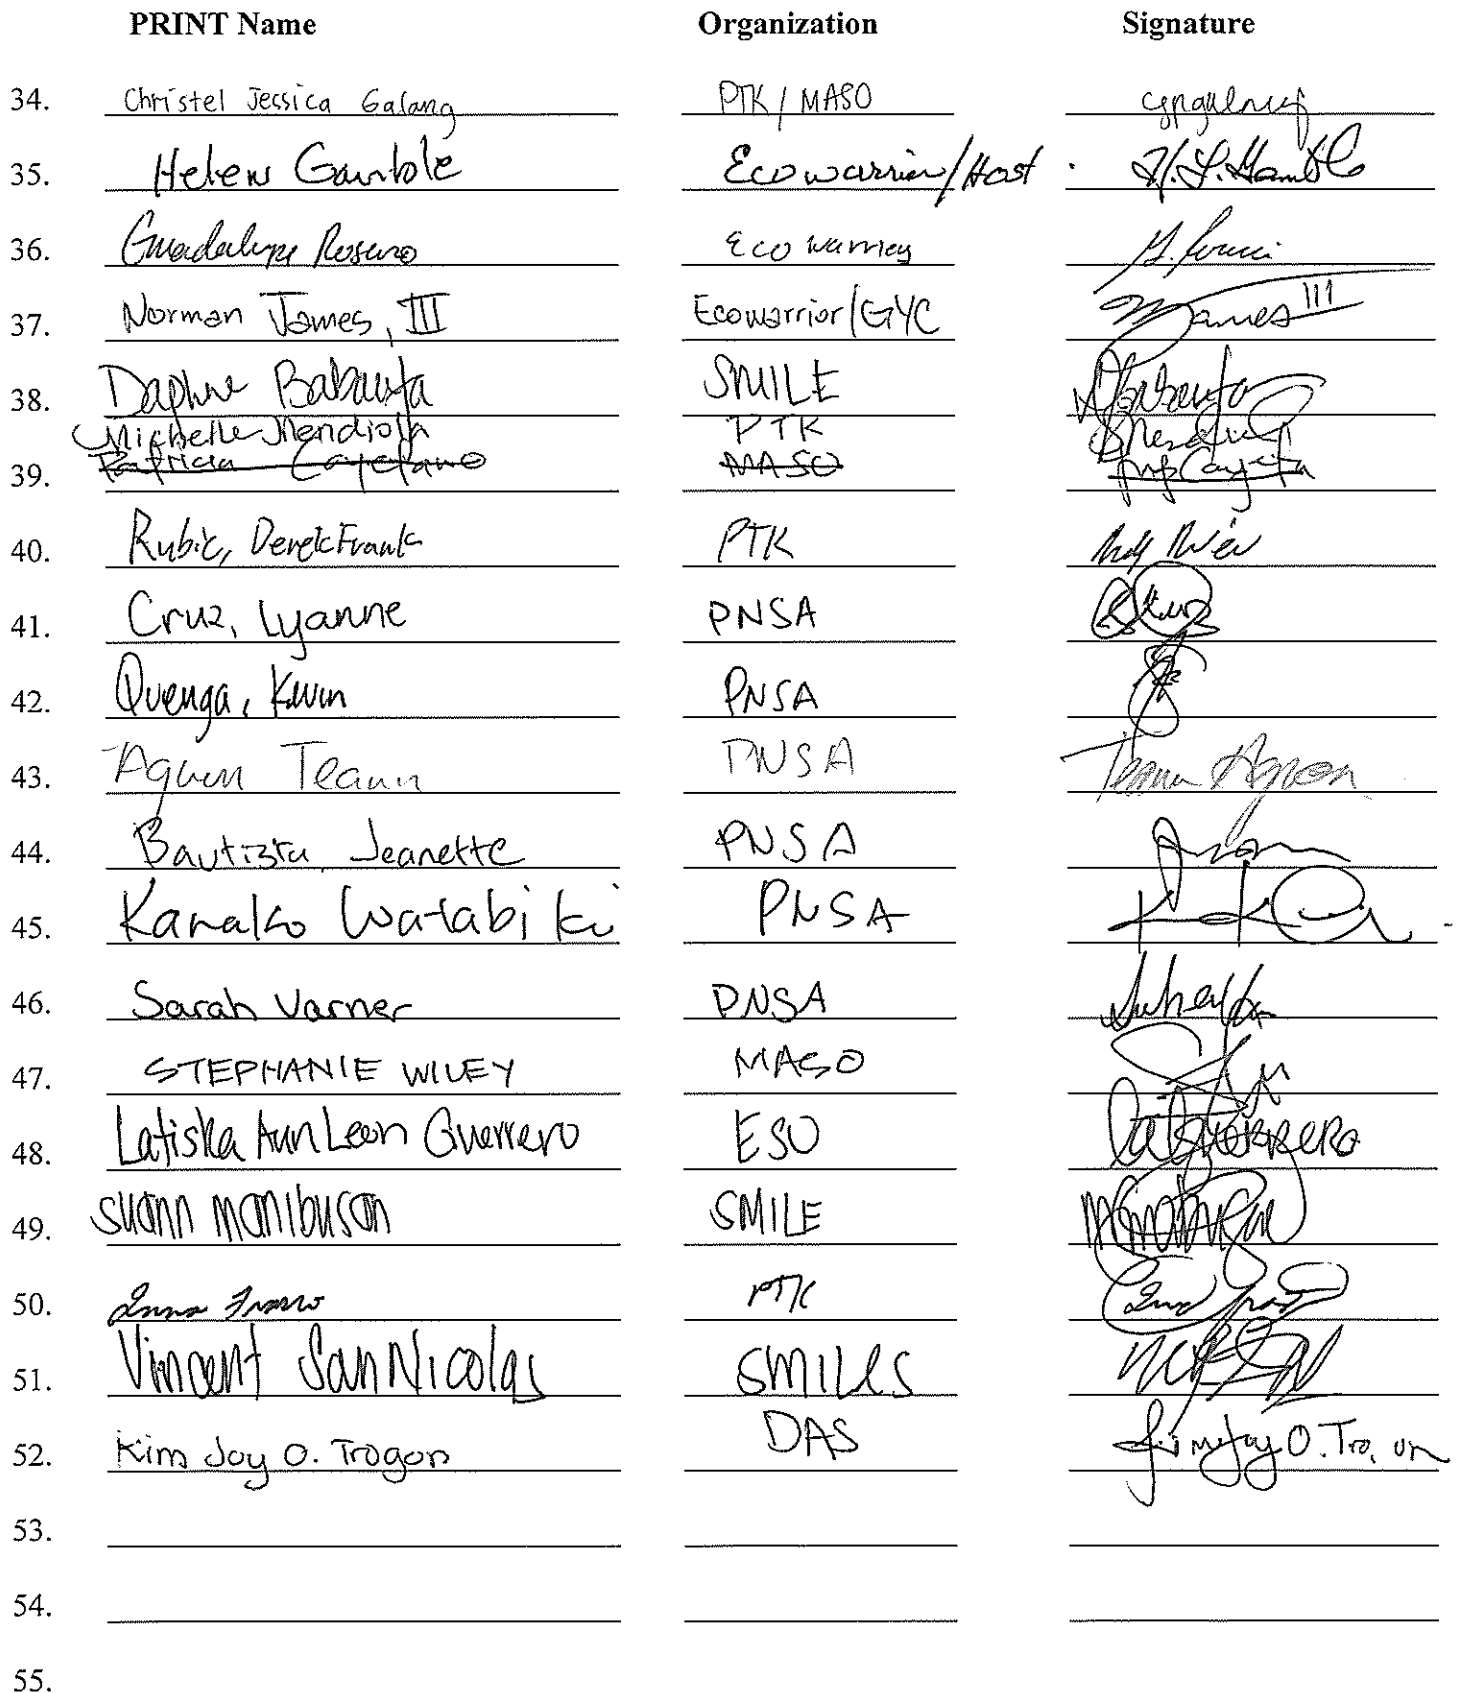 PRINT Name Organization Signature
34. Christel Jessica Galang PTK / MASO
35. Helen Gamble Ecowarrior/Host H. L. Gamble
36. Guadalupe Rosario Eco Warrior
37. Norman James, III Ecowarrior/GYC James III
38. Daphne Babauta SMILE
Michelle Mendiola PTK
39. Patricia Cayetano MASO
40. Rubic, Derek Frank PTK
41. Cruz, Lyanne PNSA
42. Quenga, Kevin PNSA
43. Aguon Teann PNSA Teann Aguon
44. Bautista Jeanette PNSA
45. Kanako Watabiki PNSA
46. Sarah Varner PNSA
47. STEPHANIE WILEY MASO
48. Latisha Ann Leon Guerrero ESO
49. Suann Manibusan SMILE
50. PTK
51. Vincent San Nicolas SMILES
52. Kim Joy O. Trogon DAS Kim Joy O. Tro on
53.
54.
55.